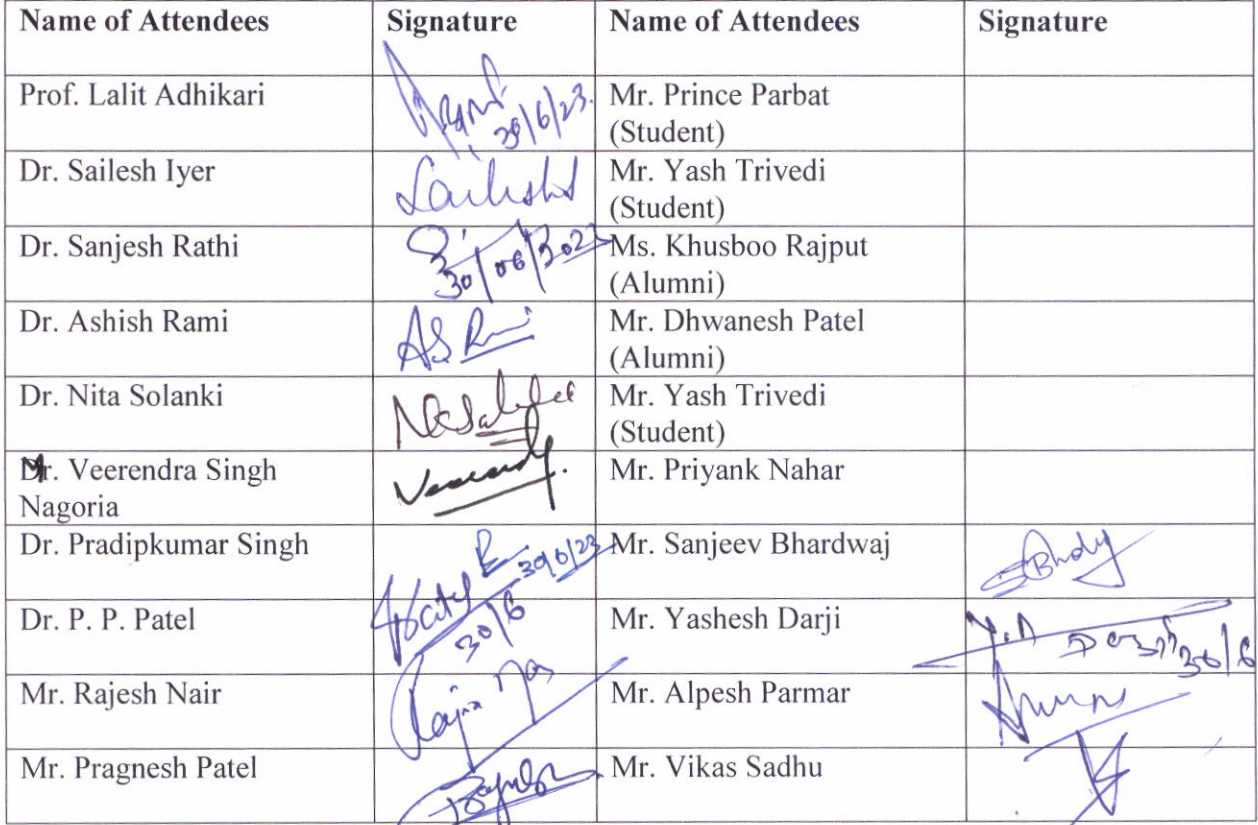 Name of Attendees Signature Name of Attendees Signature
Prof. Lalit Adhikari 30/6/23. Mr. Prince Parbat
(Student)
Dr. Sailesh Iyer Sailesh Mr. Yash Trivedi
(Student)
Dr. Sanjesh Rathi 30/06/2023 Ms. Khusboo Rajput
(Alumni)
Dr. Ashish Rami AS Rami Mr. Dhwanesh Patel
(Alumni)
Dr. Nita Solanki Mr. Yash Trivedi
(Student)
Mr. Veerendra Singh Mr. Priyank Nahar
Nagoria
Dr. Pradipkumar Singh 30/6/23 Mr. Sanjeev Bhardwaj
Dr. P. P. Patel 30/6 Mr. Yashesh Darji 30/6
Mr. Rajesh Nair Mr. Alpesh Parmar
Mr. Pragnesh Patel Mr. Vikas Sadhu